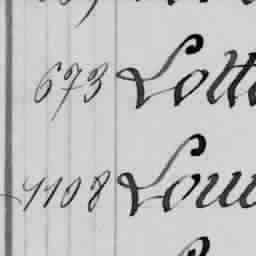 673 Lott
1108 Lou